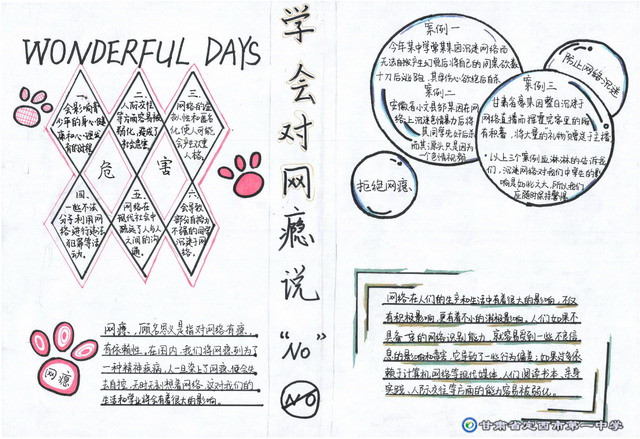 WONDERFUL DAYS
一.
会影响青
少年的身心健
康和心理发
育的过程.
二.
人际交往
等方面容易被
弱化,造成了
社会危害
三.
网络的虚
拟性和匿名
化,使人可能
会产生双重
人格.
危 害
四.
一些不法
分子利用网
络进行违法
犯罪等活
动.
五.
网络在
现代社会中
疏远了人与人
之间的沟
通.
六.
会导致
部分自控力
不强的同学
沉迷于网
络.
网瘾
网瘾,顾名思义是指对网络有瘾、
有依赖性,在国内,我们将网瘾列为了
一种精神疾病,人一旦染上了网瘾,便会失
去自控,无时无刻想着网络,这对我们的
生活和学业将会有着很大的影响.
学会对网瘾说
“No”
NO
案例一
今年某中学高某某因沉迷网络而
无法自拔产生幻想后将自己的闺蜜砍数
十刀后逃跑,其母伤心欲绝后自杀.
案例二
安徽省小文县邹某因在网
络上沉迷色情暴力后将
其同学先奸后杀
而其源头只是因为
一个色情视频
防止网络沉迷
案例三
甘肃省秦某因整日沉迷于
网络直播而挥霍完家里的所
有积蓄,将大量的“礼物”赠送于主播
以上三个案例血淋淋的告诉我
们,沉迷网络对我们中学生的影
响是如此之大,所以我们
应随时保持警惕.
拒绝网瘾
网络在人们的生产和生活中有着很大的影响,不仅
有积极影响,更有着不小的消极影响.人们如果不
具备一定的网络识别能力,就容易受到一些不良信
息的影响和毒害,它导致了一些行为偏差;如果过多依
赖于计算机网络等现代媒体,人们阅读书本、亲身
实践、人际交往等方面的能力容易被弱化.
甘肃省定西市第一中学